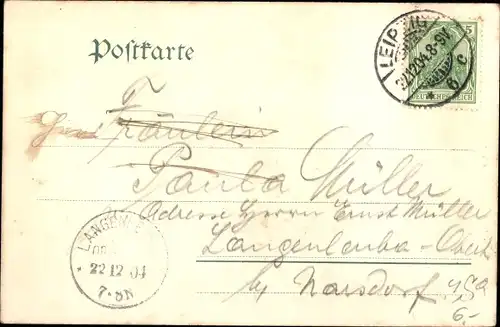 Postkarte
LEIPZIG
22.12.04.8-9V.
* 6 c
5
DEUTSCHES REICH
Fräulein
Paula Müller
Adresse Herrn Ernst Müller
Langenleuba-Oberh
b/ Narsdorf
LANGEN
22 12 04
7-8N
6.-